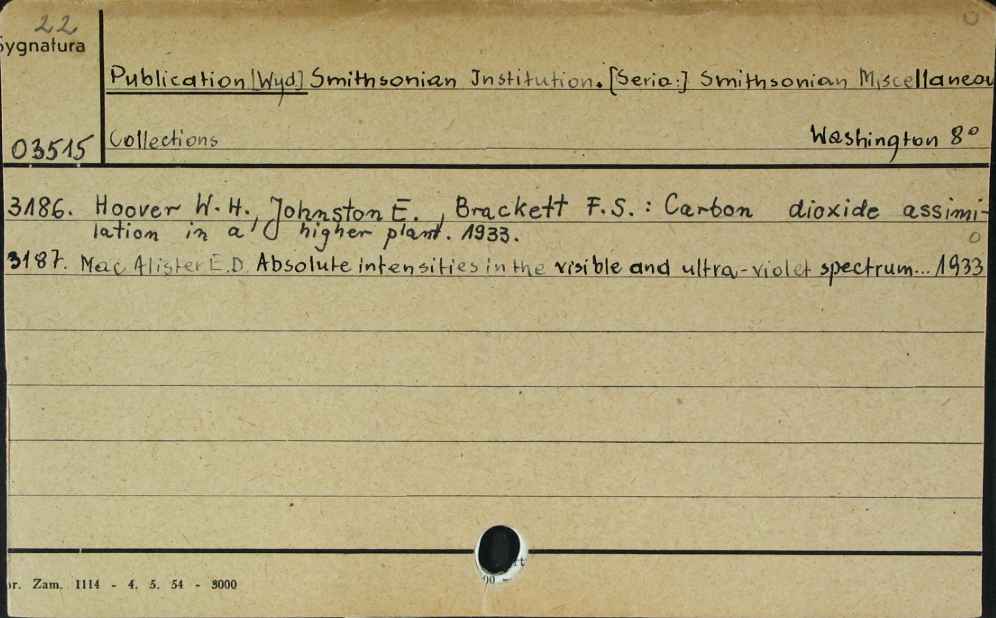 22
Sygnatura
Publication [Wyd] Smithsonian Institution. [Seria:] Smithsonian Miscellaneou
03515 Collections Washington 8°
3186. Hoover W. H., Johnston E., Brackett F. S.: Carbon dioxide assimi-
lation in a higher plant. 1933.
3187. Mac Alister E.D. Absolute intensities in the visible and ultra-violet spectrum... 1933
r. Zam. 1114 - 4. 5. 54 - 3000